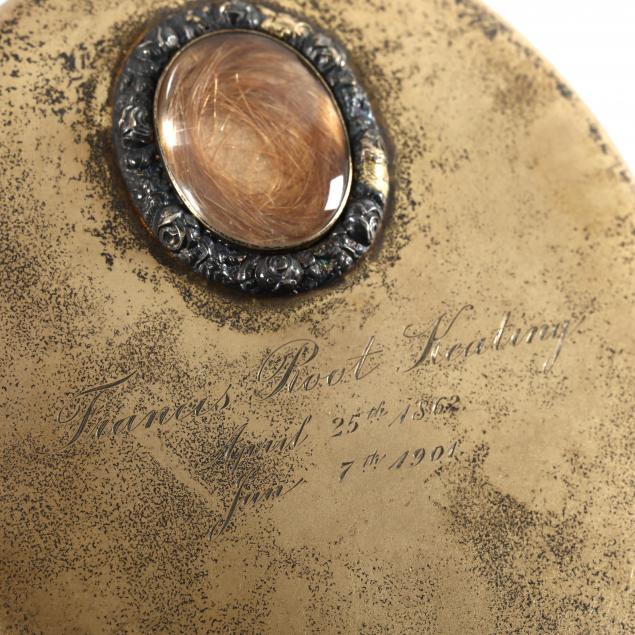 Francis Root Keating
April 25th 1862
Jan 7th 1901